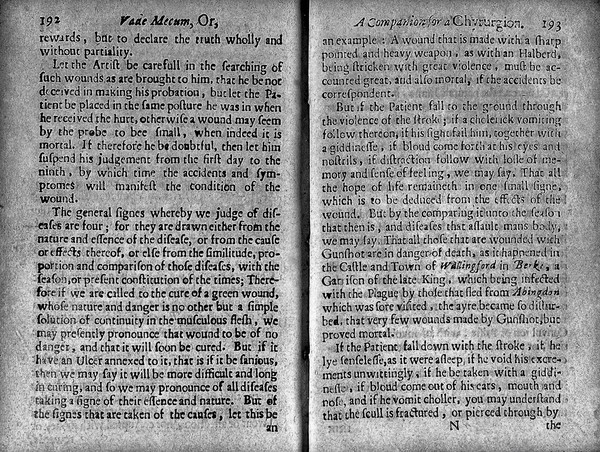 192 Vade Mecum, Or,
rewards, but to declare the truth wholly and
without partiality.
Let the Artist be carefull in the searching of
such wounds as are brought to him, that he be not
deceived in making his probation, but let the Pa-
tient be placed in the same posture he was in when
he received the hurt, otherwise a wound may seem
by the probe to bee small, when indeed it is
mortal. If therefore he be doubtful, then let him
suspend his judgement from the first day to the
ninth, by which time the accidents and sym-
ptomes will manifest the condition of the
wound.
The general signes whereby we judge of dis-
eases are four; for they are drawn either from the
nature and essence of the disease, or from the cause
or effects thereof, or else from the similitude, pro-
portion and comparison of those diseases, with the
season, or present constitution of the times; There-
fore if we are called to the cure of a green wound,
whose nature and danger is no other but a simple
solution of continuity in the musculous flesh, we
may presently pronounce that wound to be of no
danger, and that it will soon be cured. But if it
have an Ulcer annexed to it, that is if it be sanious,
then we may say it will be more difficult and long
in curing, and so we may pronounce of all diseases
taking a signe of their essence and nature. But of
the signes that are taken of the causes, let this be
an
A Companion for a Chyrurgion. 193
an example: A wound that is made with a sharp
pointed and heavy weapon, as with an Halberd,
being stricken with great violence, must be ac-
counted great, and also mortal, if the accidents be
correspondent.
But if the Patient fall to the ground through
the violence of the stroke; if a cholerick vomiting
follow thereon, if his sight fail him, together with
a giddinesse, if bloud come forth at his eyes and
nostrils, if distraction follow with losse of me-
mory and sense of feeling, we may say, That all
the hope of life remaineth in one small signe,
which is to be deduced from the effects of the
wound. But by the comparing it unto the season
that then is, and diseases that assault mans body,
we may say, That all those that are wounded with
Gunshot are in danger of death, as it happened in
the Castle and Town of Wallingford in Berks, a
Garrison of the late King, which being infected
with the Plague by those that fled from Abingdon
which was sore visited, the ayre became so distur-
bed, that very few wounds made by Gunshot, but
proved mortal.
If the Patient fall down with the stroke, if he
lye senselesse, as it were asleep, if he void his excre-
ments unwittingly, if he be taken with a giddi-
nesse, if bloud come out of his ears, mouth and
nose, and if he vomit choller, you may understand
that the scull is fractured, or pierced through by
N the